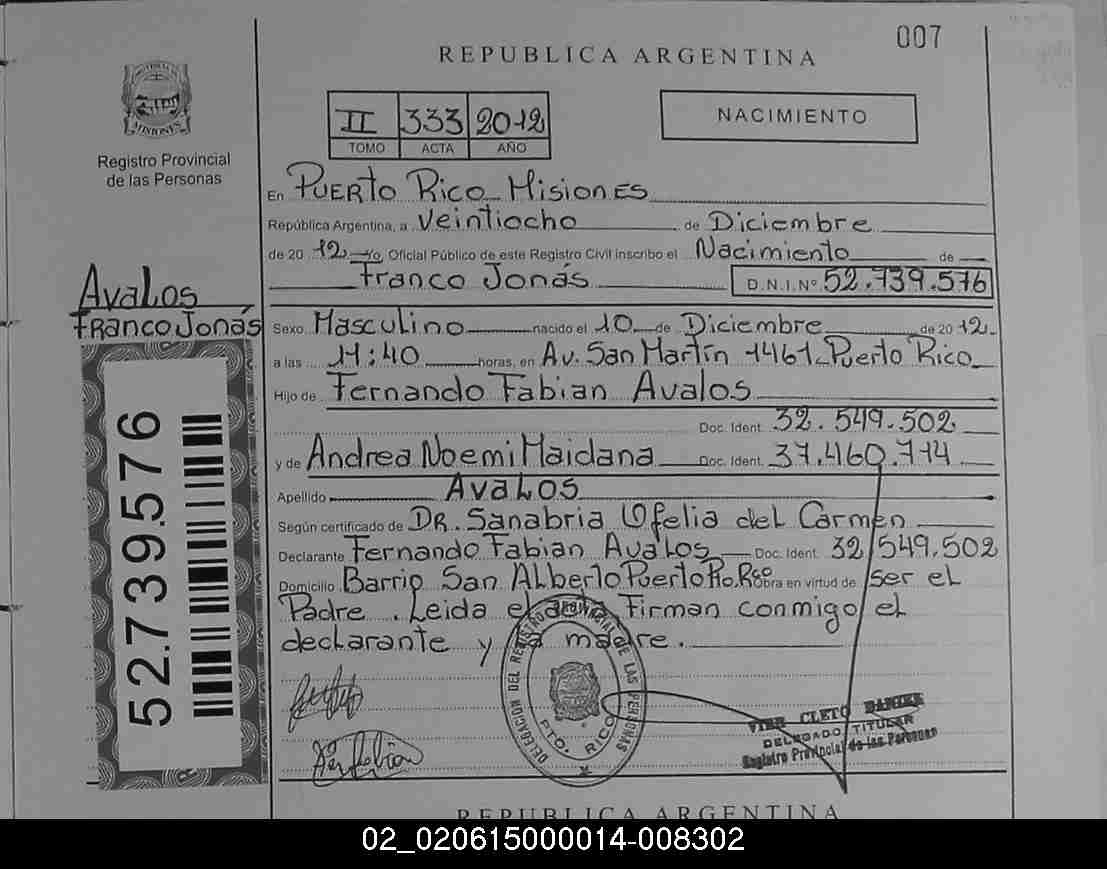 007
REPUBLICA ARGENTINA
PROVINCIA DE
MISIONES
Registro Provincial
de las Personas
II 333 2012
TOMO ACTA AÑO
NACIMIENTO
En PUERTO RICO MISIONES
República Argentina, a Veintiocho de Diciembre
de 2012 yo, Oficial Público de este Registro Civil inscribo el Nacimiento de
Franco Jonás D.N.I.Nº 52.739.576
Avalos
Franco Jonás
Sexo Masculino nacido el 10 de Diciembre de 2012
a las 11:40 horas, en Av. San Martín 1461 Puerto Rico
Hijo de Fernando Fabian Avalos
Doc. Ident. 32.549.502
y de Andrea Noemi Maidana Doc. Ident. 37.460.714
Apellido AVALOS
Según certificado de DR. Sanabria Ofelia del Carmen
Declarante Fernando Fabian Avalos Doc. Ident. 32.549.502
Domicilio Barrio San Alberto Puerto Rico. Obra en virtud de ser el
Padre. Leida el acta Firman conmigo el
declarante y la madre.
52.739.576
DELEGACION DEL REGISTRO PROVINCIAL DE LAS PERSONAS
PTO. RICO
CLETO
DELEGADO TITULAR
Registro Provincial de las Personas
REPUBLICA ARGENTINA
02_020615000014-008302